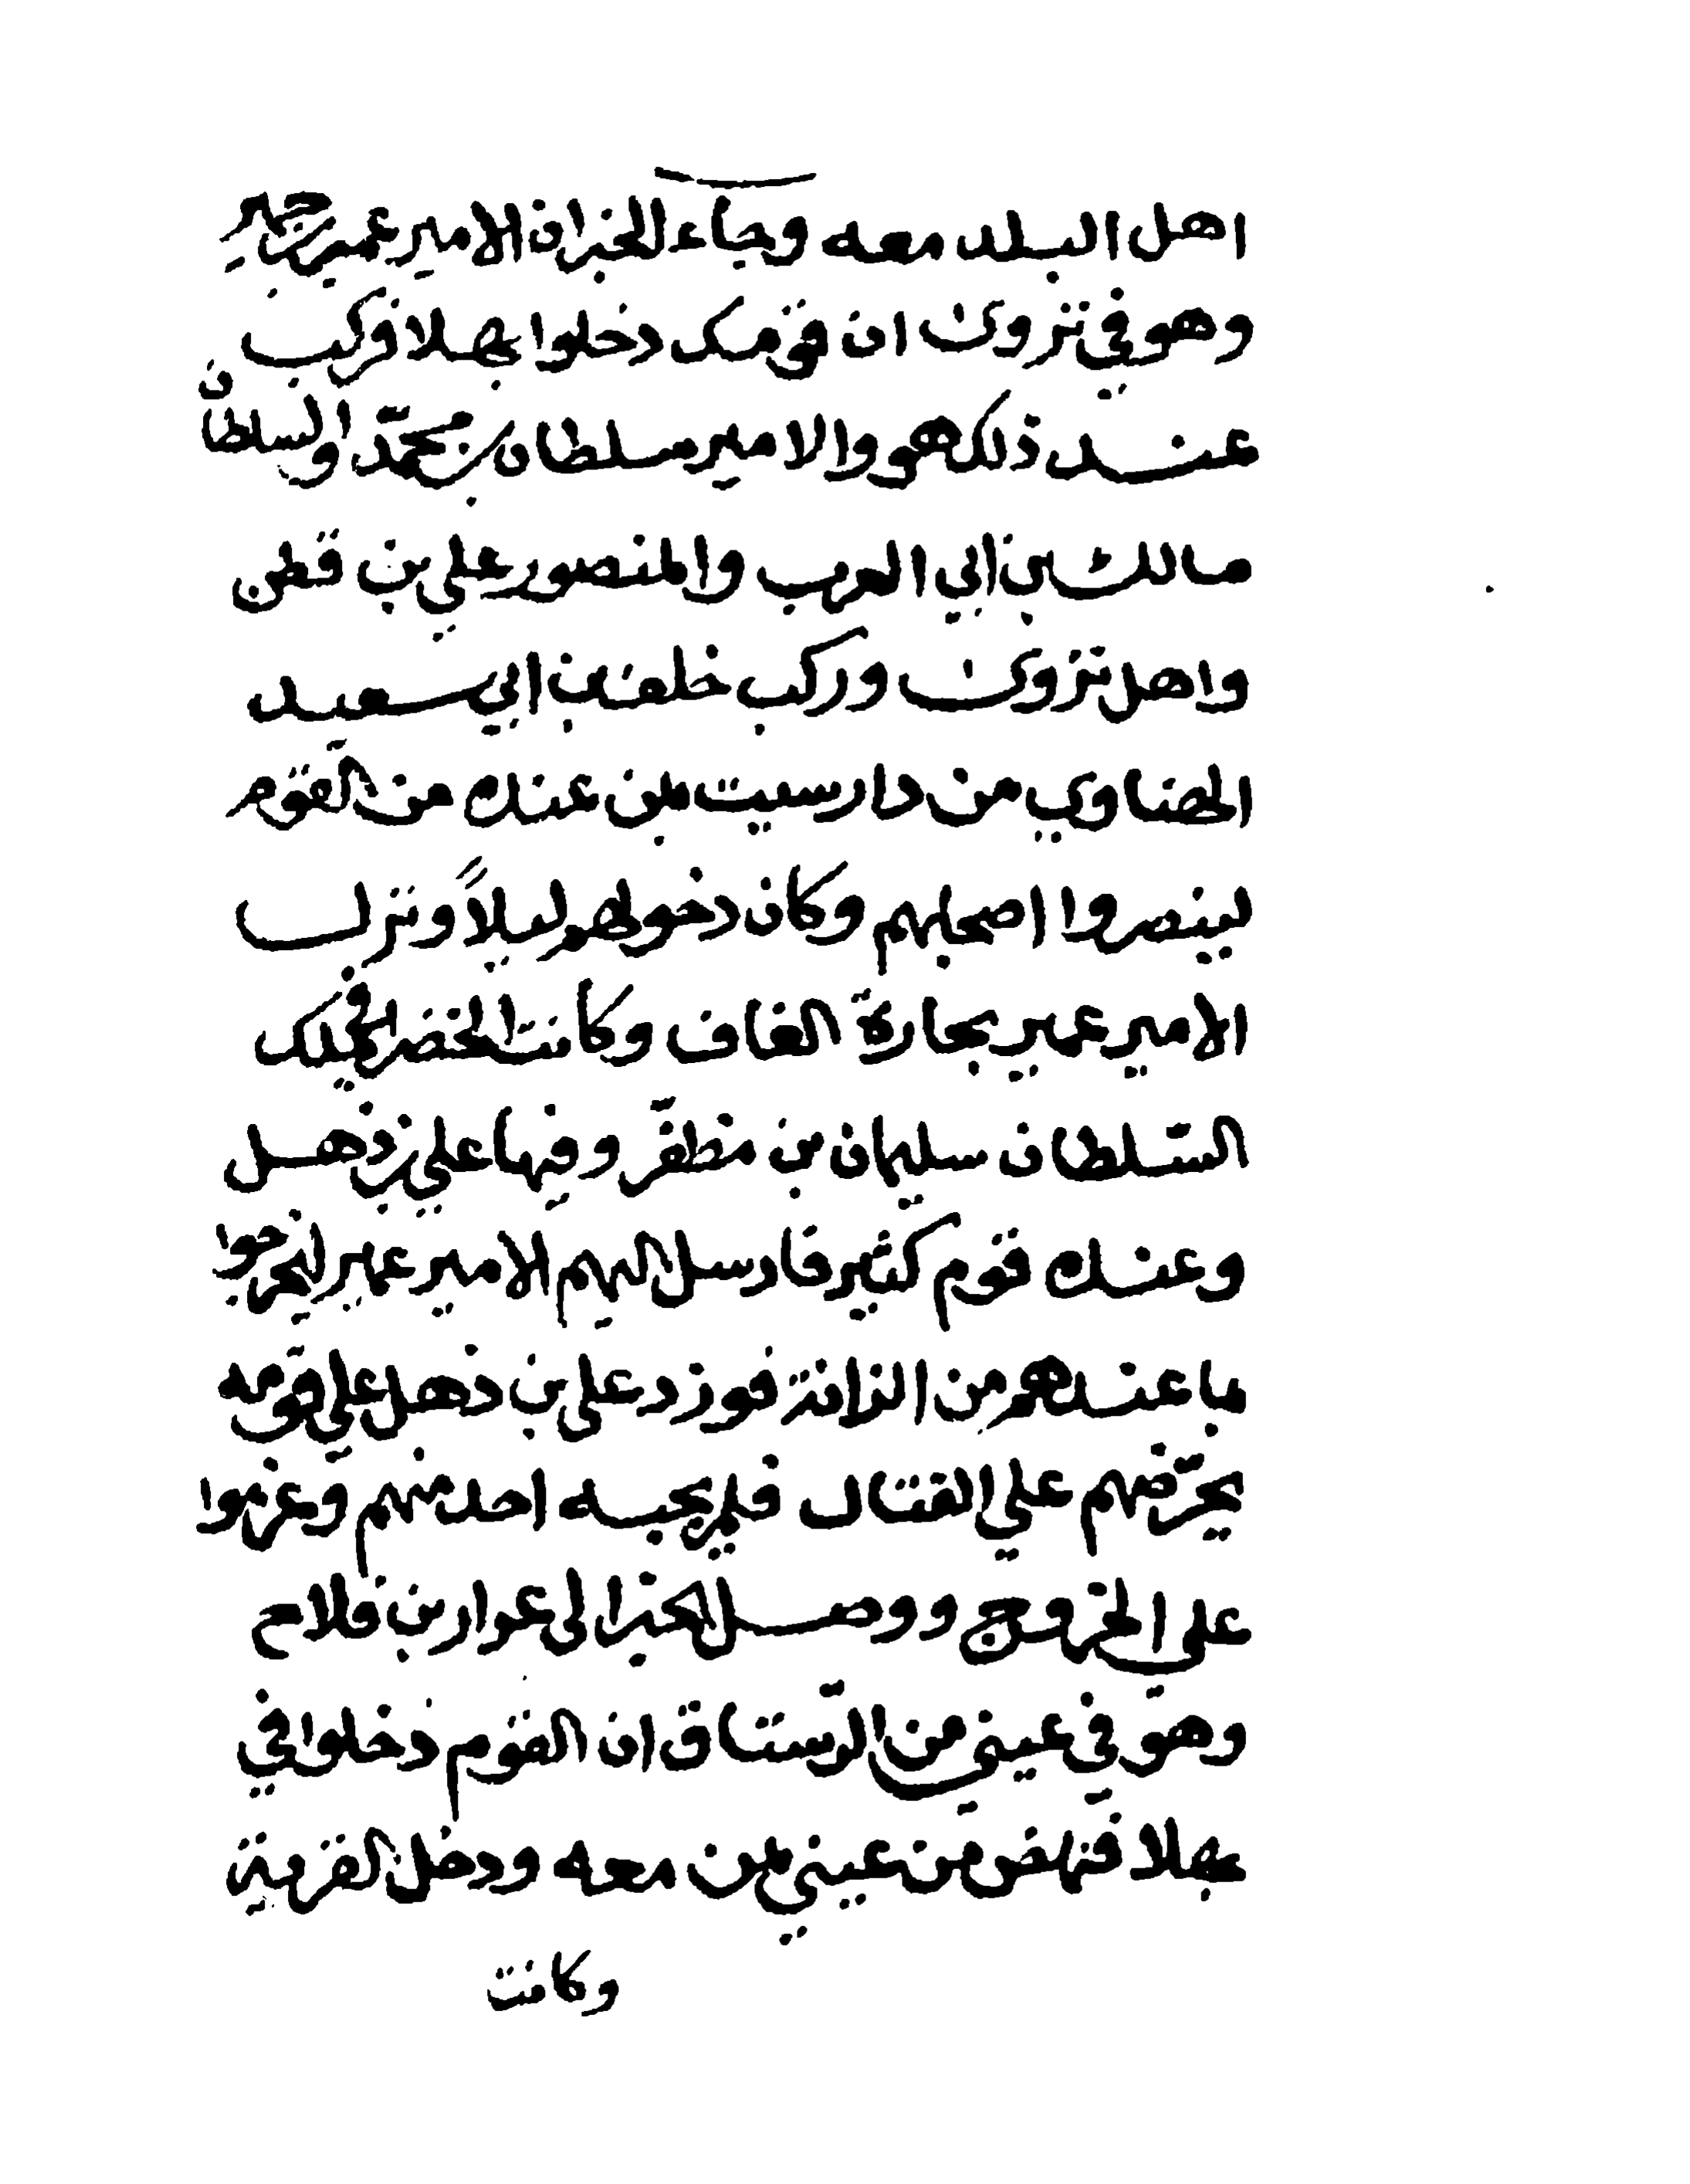 اهل البلد معه وجاء الخبر ان الامير عمير بن حمير
وهو في نزوى ان قومك دخلوا بهلا فركب
عند ذلك هو والامير سلطان بن محمد والسلطان
مالك بن ابي العرب والمنصور علي بن قطن
واهل نزوى وركب خلف بن ابي سعيد
الهناوي من دار سيت بمن عنده من القوم
لينصروا اصحابهم وكان دخولهم ليلاً ونزل
الامير عمير بحارة الغاف وكانت الخضرا في ملك
السلطان سليمان بن مظفر وفيها علي بن ذهل
وعنده قوم كثير فارسل اليهم الامير عمير ليخرجوا
بما عندهم من الزانة فوزد علي بن ذهل علي قومه
يحرّضهم علي القتال فلم يجبه احد منهم وعزموا
علي الخروج ووصل الخبر الى عرار بن فلاح
وهو في عيني من الرستاق ان القوم دخلوا في
بهلا فنهض من عيني بمن معه ودخل القرية
وكانت